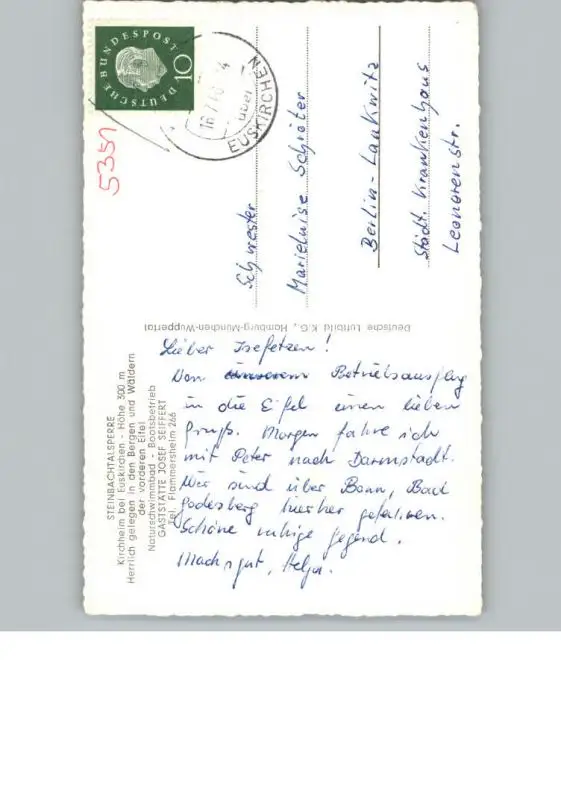 DEUTSCHE BUNDESPOST
10
über
EUSKIRCHEN
5351
Schwester
Marieluise Schröter
Berlin-Lankwitz
Städt. Krankenhaus
Leonorenstr.
Deutsche Luftbild K.G., Hamburg-München-Wuppertal
STEINBACHTALSPERRE
Kirchheim bei Euskirchen - Höhe 300 m
Herrlich gelegen in den Bergen und Wäldern
der vorderen Eifel
Naturschwimmbad - Bootsbetrieb
GASTSTÄTTE JOSEF SEIFFERT
Tel. Flammersheim 266
Lieber
Von unserem Betriebsausflug
in die Eifel einen lieben
Gruß. Morgen fahre ich
mit Peter nach Darmstadt.
Wir sind über Bonn, Bad
Godesberg hierher gefahren.
Schöne ruhige Gegend.
Mach's gut, Helga.